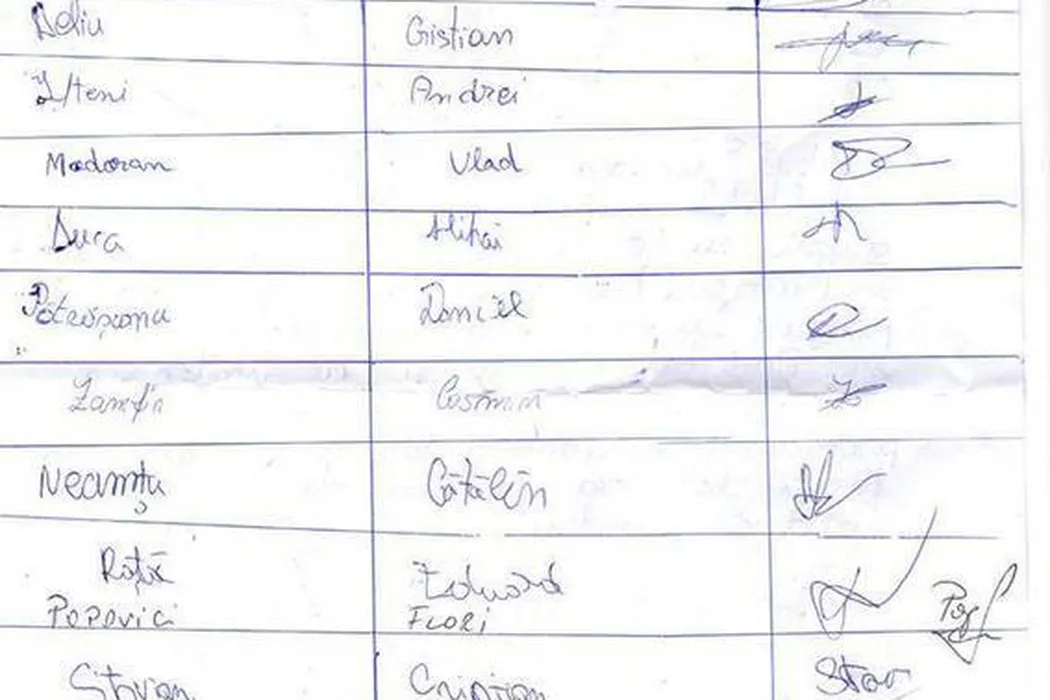 Deliu Cristian
Ilteni Andrei
Madaran Vlad
Duca Mihai
Daniel
Zamfir Cosmin
Neamțu Cătălin
Rață Eduard
Popovici FLORI
Stoian Cristian Stov